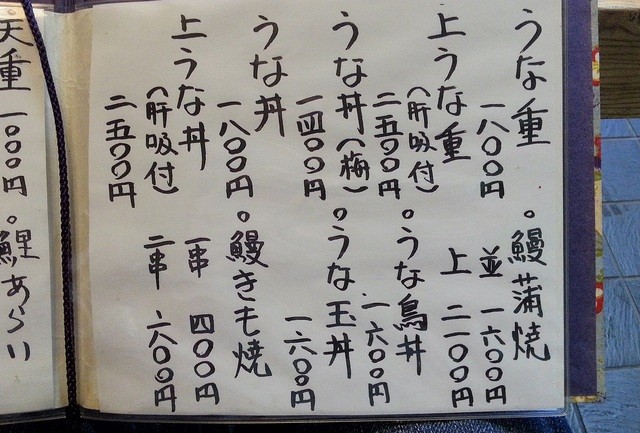 うな重
一八〇〇円
上うな重
(肝吸付)
二五〇〇円
うな丼(梅)
一四〇〇円
うな丼
一八〇〇円
上うな丼
(肝吸付)
二五〇〇円
。鰻蒲焼
並 一六〇〇円
上 二一〇〇円
。うな鳥丼
一六〇〇円
。うな玉丼
一六〇〇円
。鰻きも焼
一串 四〇〇円
二串 六〇〇円
天重
一〇〇〇円
。鯉あらい